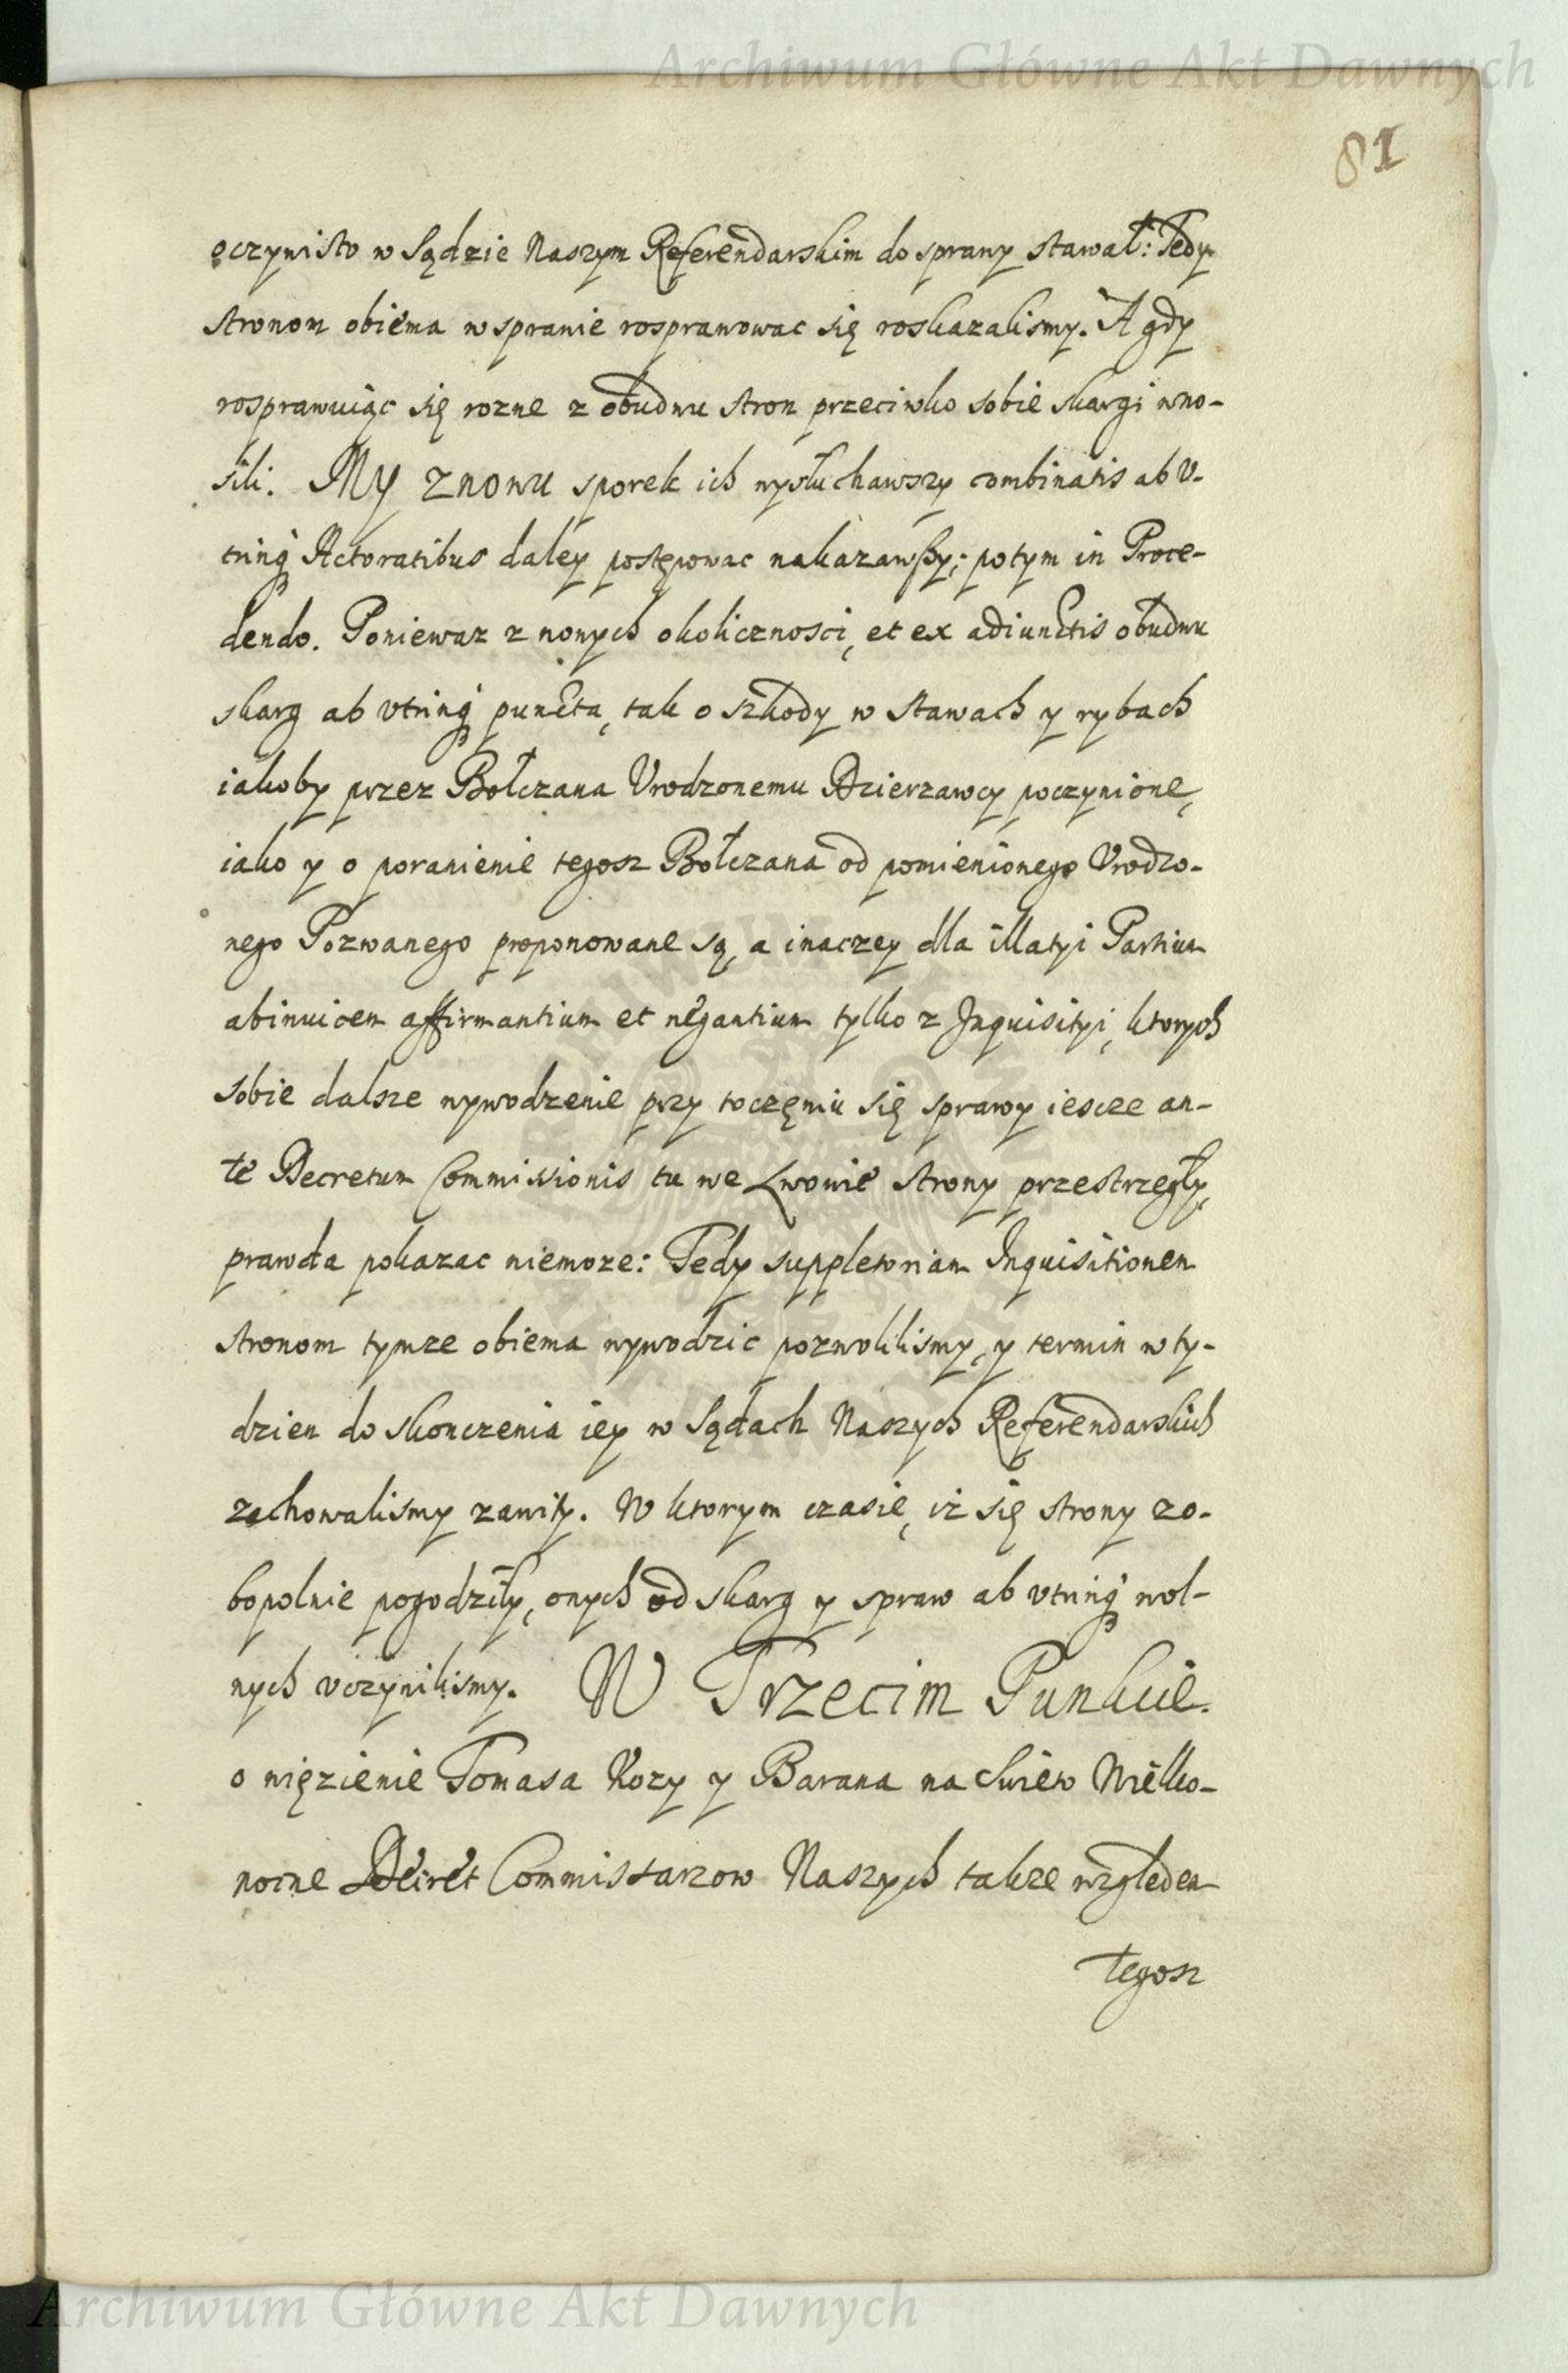 Archiwum Główne Akt Dawnych
81
oczywisto w Sądzie Naszym Referendarskim do sprawy stawał: Tedy
stronom obiema w sprawie rosprawowac się roskazalismy. A gdy
rosprawuiąc się rozne z obudwu stron przeciwko sobie skargi wno-
sili. My znowu sporek ich wysłuchawszy combinatis ab v-
trinq Actoratibus daley postępowac nakazawszy; potym in Proce-
dendo. Poniewaz z nowych okolicznosci, et ex adiunctis obudwu
skarg ab vtrinq puncta, tak o szkody w stawach y rybach
iakoby przez Bołczana Vrodzonemu Dzierzawcy poczynione,
iako y o poranienie tegosz Bołczana od pomienionego Vrodzo-
nego Pozwanego proponowane są, a inaczey dla illatyi Partium
abinuicem affirmantium et negantium tylko z Inquisityi, ktorych
sobie dalsze wywodzenie przy toczęniu się sprawy iescze an-
te Decretum Commissionis tu we Lwowie strony przestrzegły,
prawda pokazac niemoze: Tedy suppletoriam Inquisitionem
stronom tymze obiema wywodzic pozwolilismy, y termin w ty-
dzien do skonczenia iey w Sądach Naszych Referendarskich
zachowalismy zawity. W ktorym czasie, iz się strony zo-
bopolnie pogodziły, onych od skarg y spraw ab vtrinq wol-
nych vczynilismy. W Trzecim Punkcie.
o więzienie Tomasa Kozy y Barana na Swieto Wielko-
nocne Decret Commissarzow Naszych takze względem
tegosz
Archiwum Główne Akt Dawnych